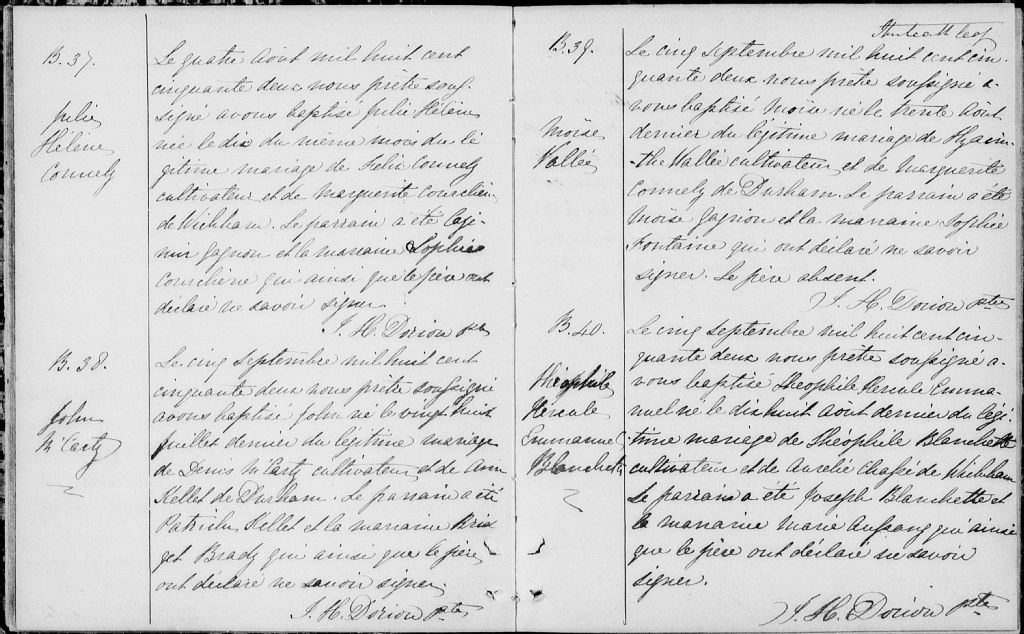 B. 37.
Julie
Hélène
Connely
Le quatre août mil huit cent
cinquante deux nous prêtre sous-
signé avons baptisé Julie Hélène
née le dix du même mois du lé
gitime mariage de Felix Connely
cultivateur et de Marguerite
de Wickham. Le parrain a été Cazi-
mir Gagnon et la marraine Sophie
qui ainsi que le père ont
déclaré ne savoir signer.
J. H. Dorion ptre
B. 38.
John
McCarty
Le cinq septembre mil huit cent
cinquante deux nous prêtre soussigné
avons baptisé John né le vingt huit
juillet dernier du légitime mariage
de Denis McCarty cultivateur et de Ann
Kellet de Durham. Le parrain a été
Patrick Kellet et la marraine Brid
get Brady qui ainsi que le père
ont déclaré ne savoir signer.
J. H. Dorion ptre
B. 39.
Moïse
Vallée
Le cinq septembre mil huit cent cin-
quante deux nous prêtre soussigné a-
vons baptisé Moïse né le trente août
dernier du légitime mariage de Hyacin-
-the Vallée cultivateur et de Marguerite
Connely de Durham. Le parrain a été
Moïse Gagnon et la marraine Sophie
Fontaine qui ont déclaré ne savoir
signer. Le père absent.
J. H. Dorion ptre
B. 40.
Théophile
Hercule
Emmanuel
Blanchette
Le cinq septembre mil huit cent cin-
quante deux nous prêtre soussigné a-
vons baptisé Théophile Hercule Emma-
nuel né le dix huit août dernier du légi-
time mariage de Théophile Blanchette
cultivateur et de Aurélie Chassé de Wickham
Le parrain a été Joseph Blanchette et
la marraine Marie qui ainsi
que le père ont déclaré ne savoir
signer.
J. H. Dorion ptre